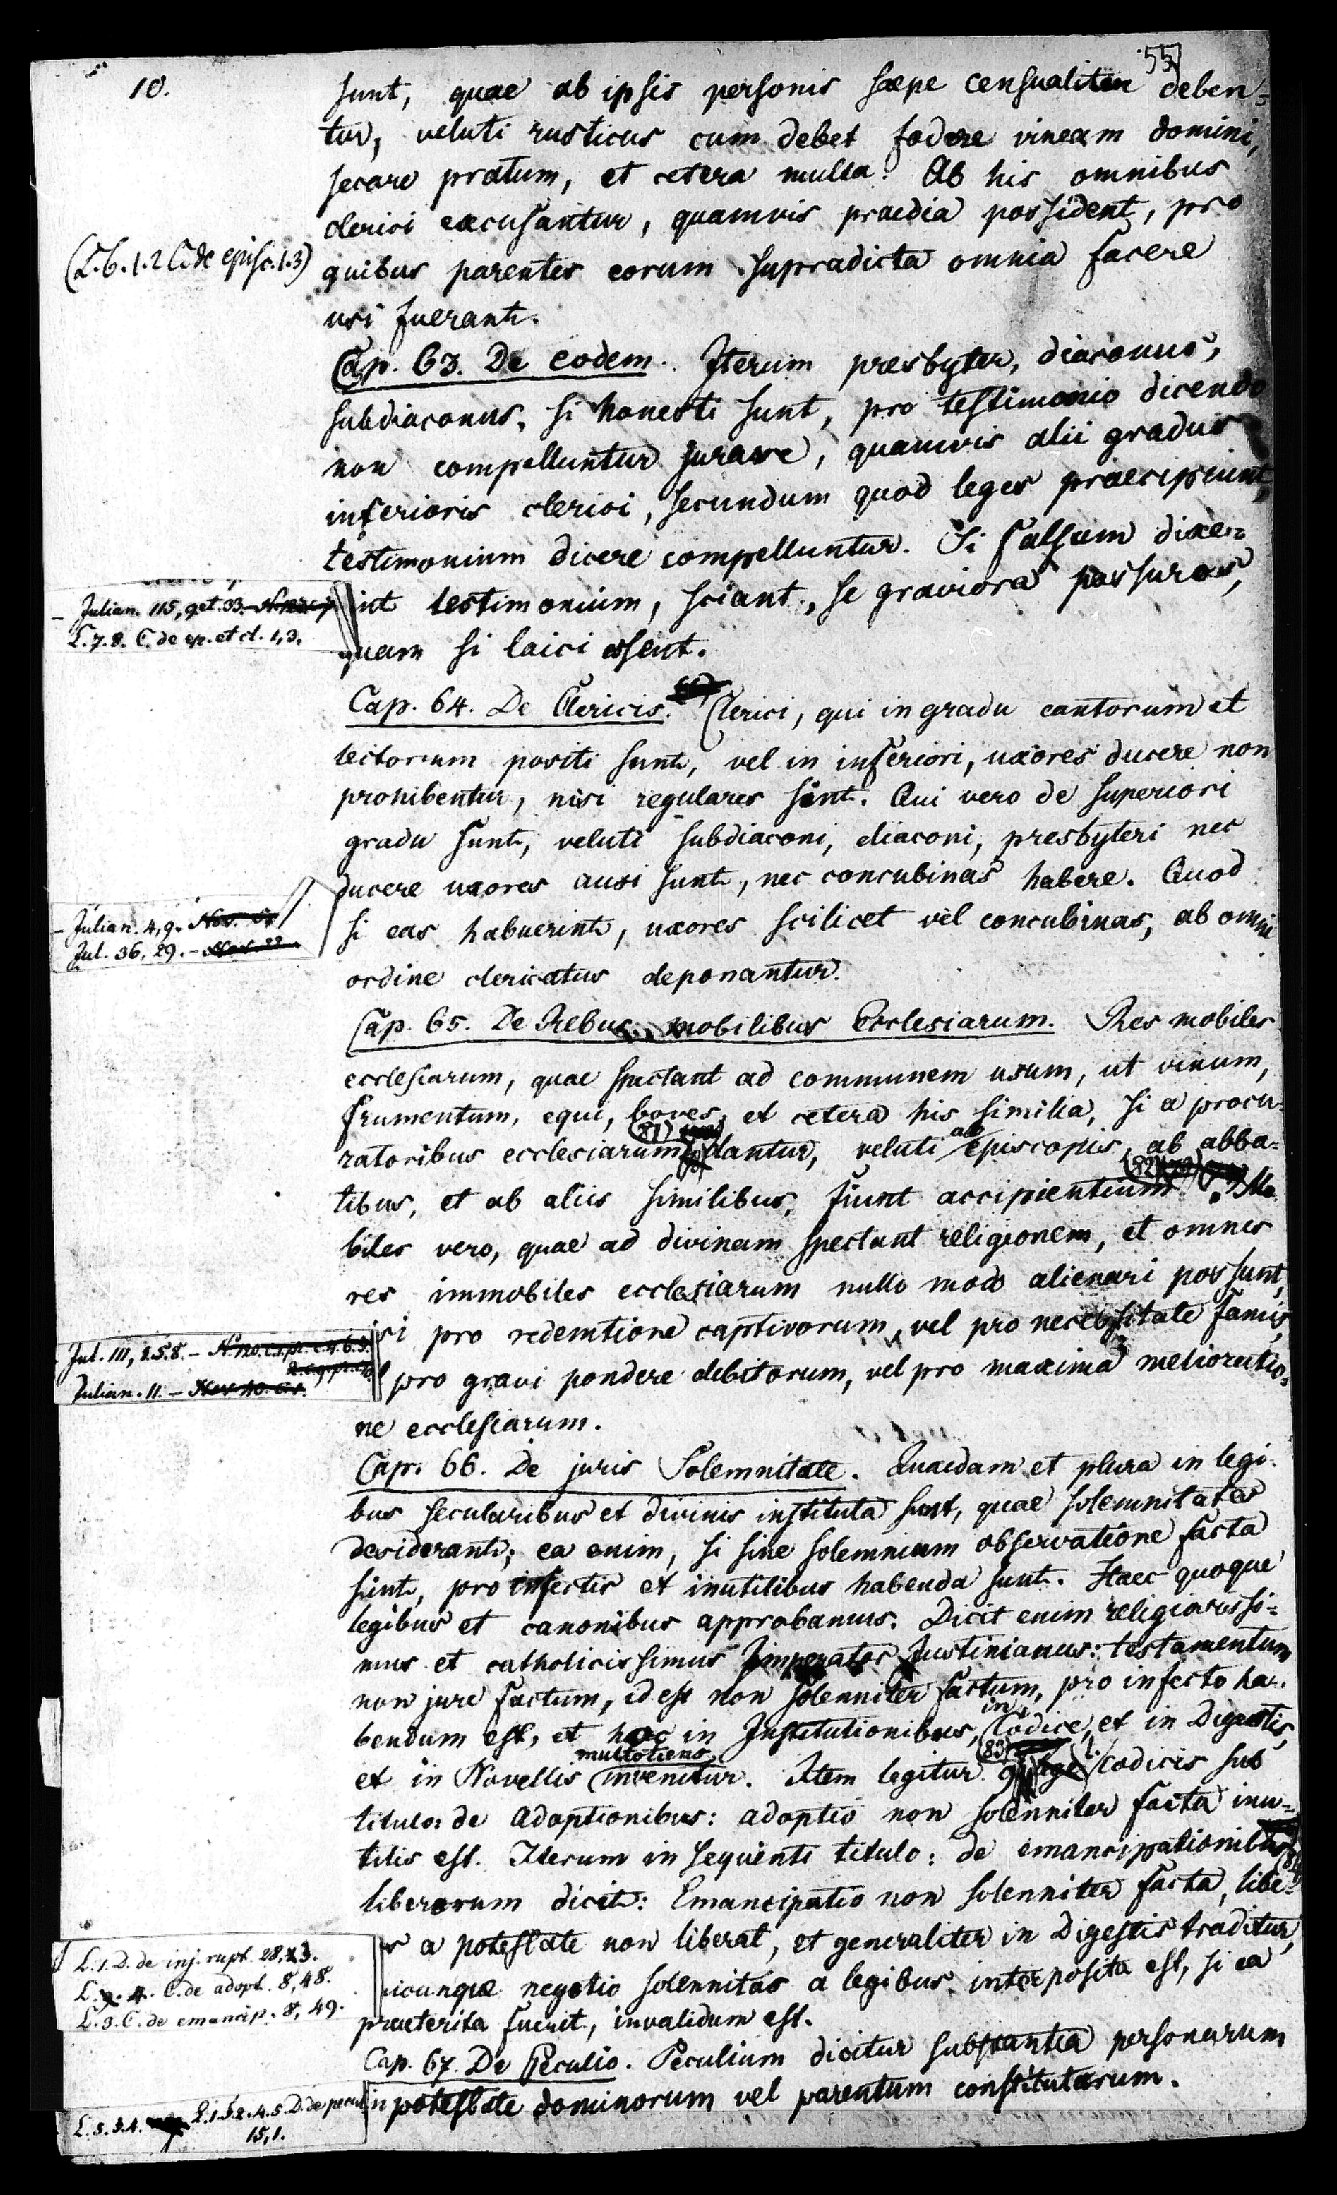 55
10.
sunt, quae ab ipsis personis saepe censualiter deben-
tur, veluti rusticus cum debet fodere vineam domini,
secare pratum, et cetera multa. Ab his omnibus
clerici excusantur, quamvis praedia possident, pro
(L. 6. 1. 2 C. de episc. 1.3)
quibus parentes eorum supradicta omnia facere
usi fuerant.
Cap. 63. De eodem. Iterum presbyter, diaconus,
subdiaconus, si honesti sunt, pro testimonio dicendo
non compelluntur jurare, quamvis alii gradus
inferioris clerici, secundum quod leges praecipiunt,
testimonium dicere compelluntur. Si falsum dixe-
- Julian. 115, get. 33.
int testimonium, sciant, se graviora passuros,
L. 7. 8. C. de ep. et cl. 1,3.
quam si laici essent.
Cap. 64. De Clericis. Clerici, qui in gradu cantorum et
lectorum positi sunt, vel in inferiori, uxores ducere non
prohibentur, nisi regulares sint. Qui vero de superiori
gradu sunt, veluti subdiaconi, diaconi, presbyteri nec
ducere uxores ausi sunt, nec concubinas habere. Quod
- Julian. 4, 9.
si eas habuerint, uxores scilicet vel concubinas, ab omni
Jul. 36, 29. -
ordine clericatus deponantur.
Cap. 65. De Rebus mobilibus Ecclesiarum. Res mobiles
ecclesiarum, quae spectant ad communem usum, ut vinum,
frumentum, equi, boves, et cetera his similia, si a procu-
ratoribus ecclesiarum 81) dantur, veluti ab episcopis, ab abba-
tibus, et ab aliis similibus, fiunt accipientium 82). Mo-
biles vero, quae ad divinam spectant religionem, et omnes
res immobiles ecclesiarum nullo modo alienari possunt,
si pro redemtione captivorum, vel pro necessitate famis,
Jul. 111, 2.5.8. -
pro gravi pondere debitorum, vel pro maxima melioratio-
Julian. 11. -
ne ecclesiarum.
Cap. 66. De juris Solemnitate. Quaedam et plura in legi-
bus secularibus et divinis instituta sunt, quae solemnitates
desiderant; ea enim, si sine solemnium observatione facta
sint, pro infectis et inutilibus habenda sunt. Haec quoque
legibus et canonibus approbamus. Dicit enim religiosissi-
mus et catholicissimus Imperator Justinianus: testamentum
non jure factum, id est non solenniter factum, pro infecto ha-
bendum est, et hoc in Institutionibus, in Codice, et in Digestis,
et in Novellis multotiens invenitur. Item legitur 83) l. Codicis sub
titulo de adoptionibus: adoptio non solenniter facta inu-
tilis est. Iterum in sequenti titulo: de emancipationibus
liberorum dicit: Emancipatio non solenniter facta, libe-
L. 1. D. de inj. rupt. 28,3.
a potestate non liberat, et generaliter in Digestis traditur,
L. 4. C. de adopt. 8, 48.
icunque negotio solennitas a legibus interposita est, si ea
L. 3. C. de emancip. 8, 49.
praeterita fuerit, invalidum est.
Cap. 67. De Peculio. Peculium dicitur substantia personarum
L. 5. 3.4. L. 1. § 2. 4. 5. D. de pecul.
in potestate dominorum vel parentum constitutarum.
15,1.